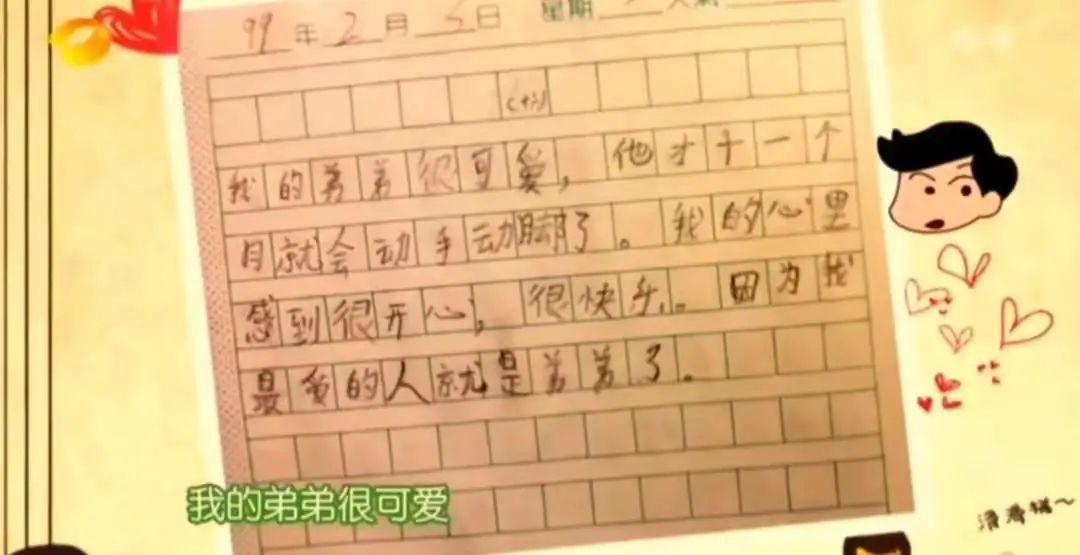 99年2月5日 星期 天氣
我的弟弟很可爱，他才十一个
月就会动手动脚了。我的心里
感到很开心，很快乐。因为我
最爱的人就是弟弟了。
我的弟弟很可爱